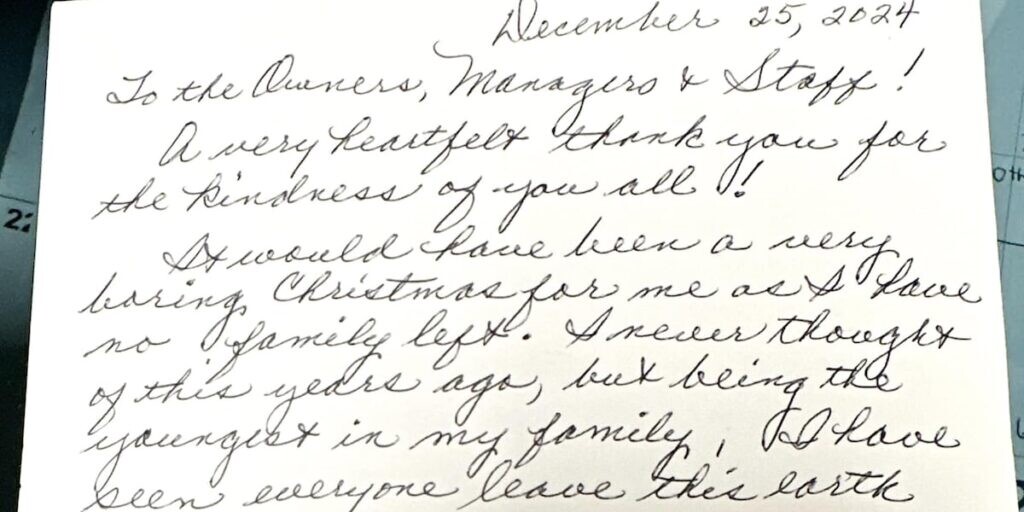 December 25, 2024
To the Owners, Managers & Staff!
A very heartfelt thank you for
the kindness of you all!
It would have been a very
boring Christmas for me as I have
no family left. I never thought
of this years ago, but being the
youngest in my family, I have
seen everyone leave this earth
22